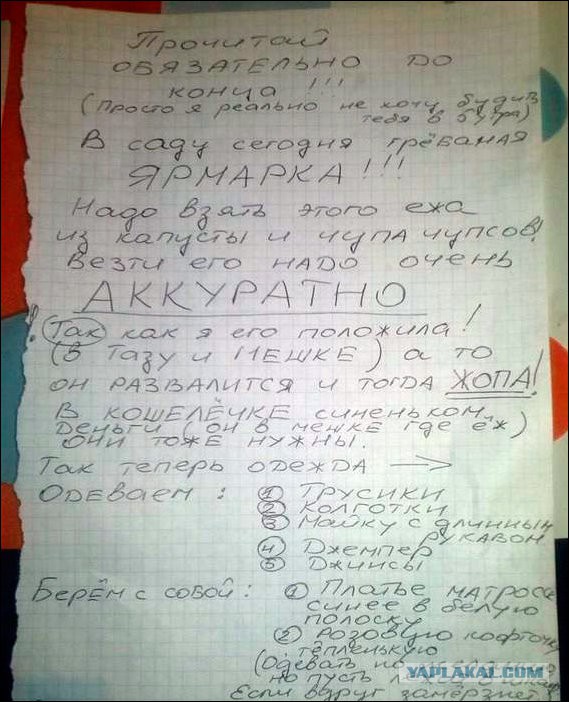 Прочитай
ОБЯЗАТЕЛЬНО ДО
КОНЦА!!!
(Просто я реально не хочу будить
тебя в 6 утра)
В саду сегодня грёбаная
ЯРМАРКА!!!
Надо взять этого ежа
из капусты и чупа чупсов!
Везти его НАДО ОЧЕНЬ
АККУРАТНО
! Так как я его положила!
(В Тазу и МЕШКЕ) а то
он РАЗВАЛИТСЯ и тогда ЖОПА!
В КОШЕЛЁЧКЕ синеньком
деньги (он в мешке где ёж)
ОНИ ТОЖЕ НУЖНЫ.
Так теперь ОДЕЖДА →
ОДЕВАЕМ: ① Трусики
② КОЛГОТКИ
③ Майку с длинным
рукавом
④ Джемпер
⑤ Джинсы
Берём с собой: ① Платье матроса
синее в белую
полоску
② Розовую кофточку
тёпленькую
(Одевать не
но пусть
Если вдруг замёрзнет
YAPLAKAL.COM